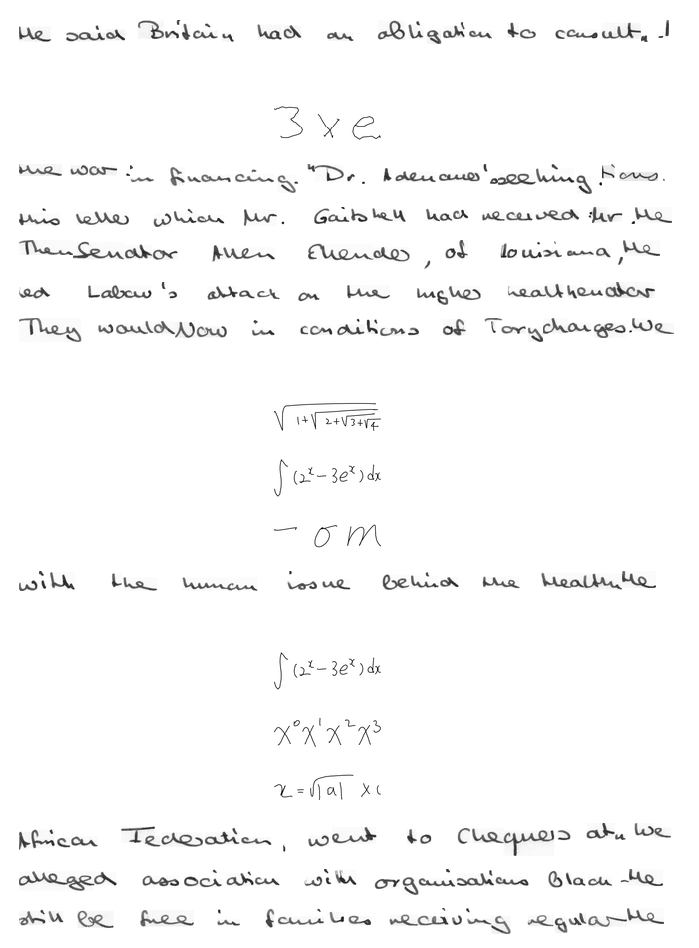 He said Britain had an obligation to consult
3 x e
the war in financing. "Dr. Adenauer's seeking tions.
this letter which Mr. Gaitskell had received Mr. He
Then Senator Allen Ellender, of Louisiana, He
ed Labour's attack on the higher health enator
They would Now in conditions of Tory charges. We
√(1+√(2+√(3+√4)))
∫(2ˣ-3eˣ)dx
- σ m
with the human issue behind the Health He
∫(2ˣ-3eˣ)dx
x⁰x¹x²x³
x=√|a| x
African Federation, went to Chequers at We
alleged association with organisations Black He
still be free in families receiving regular He